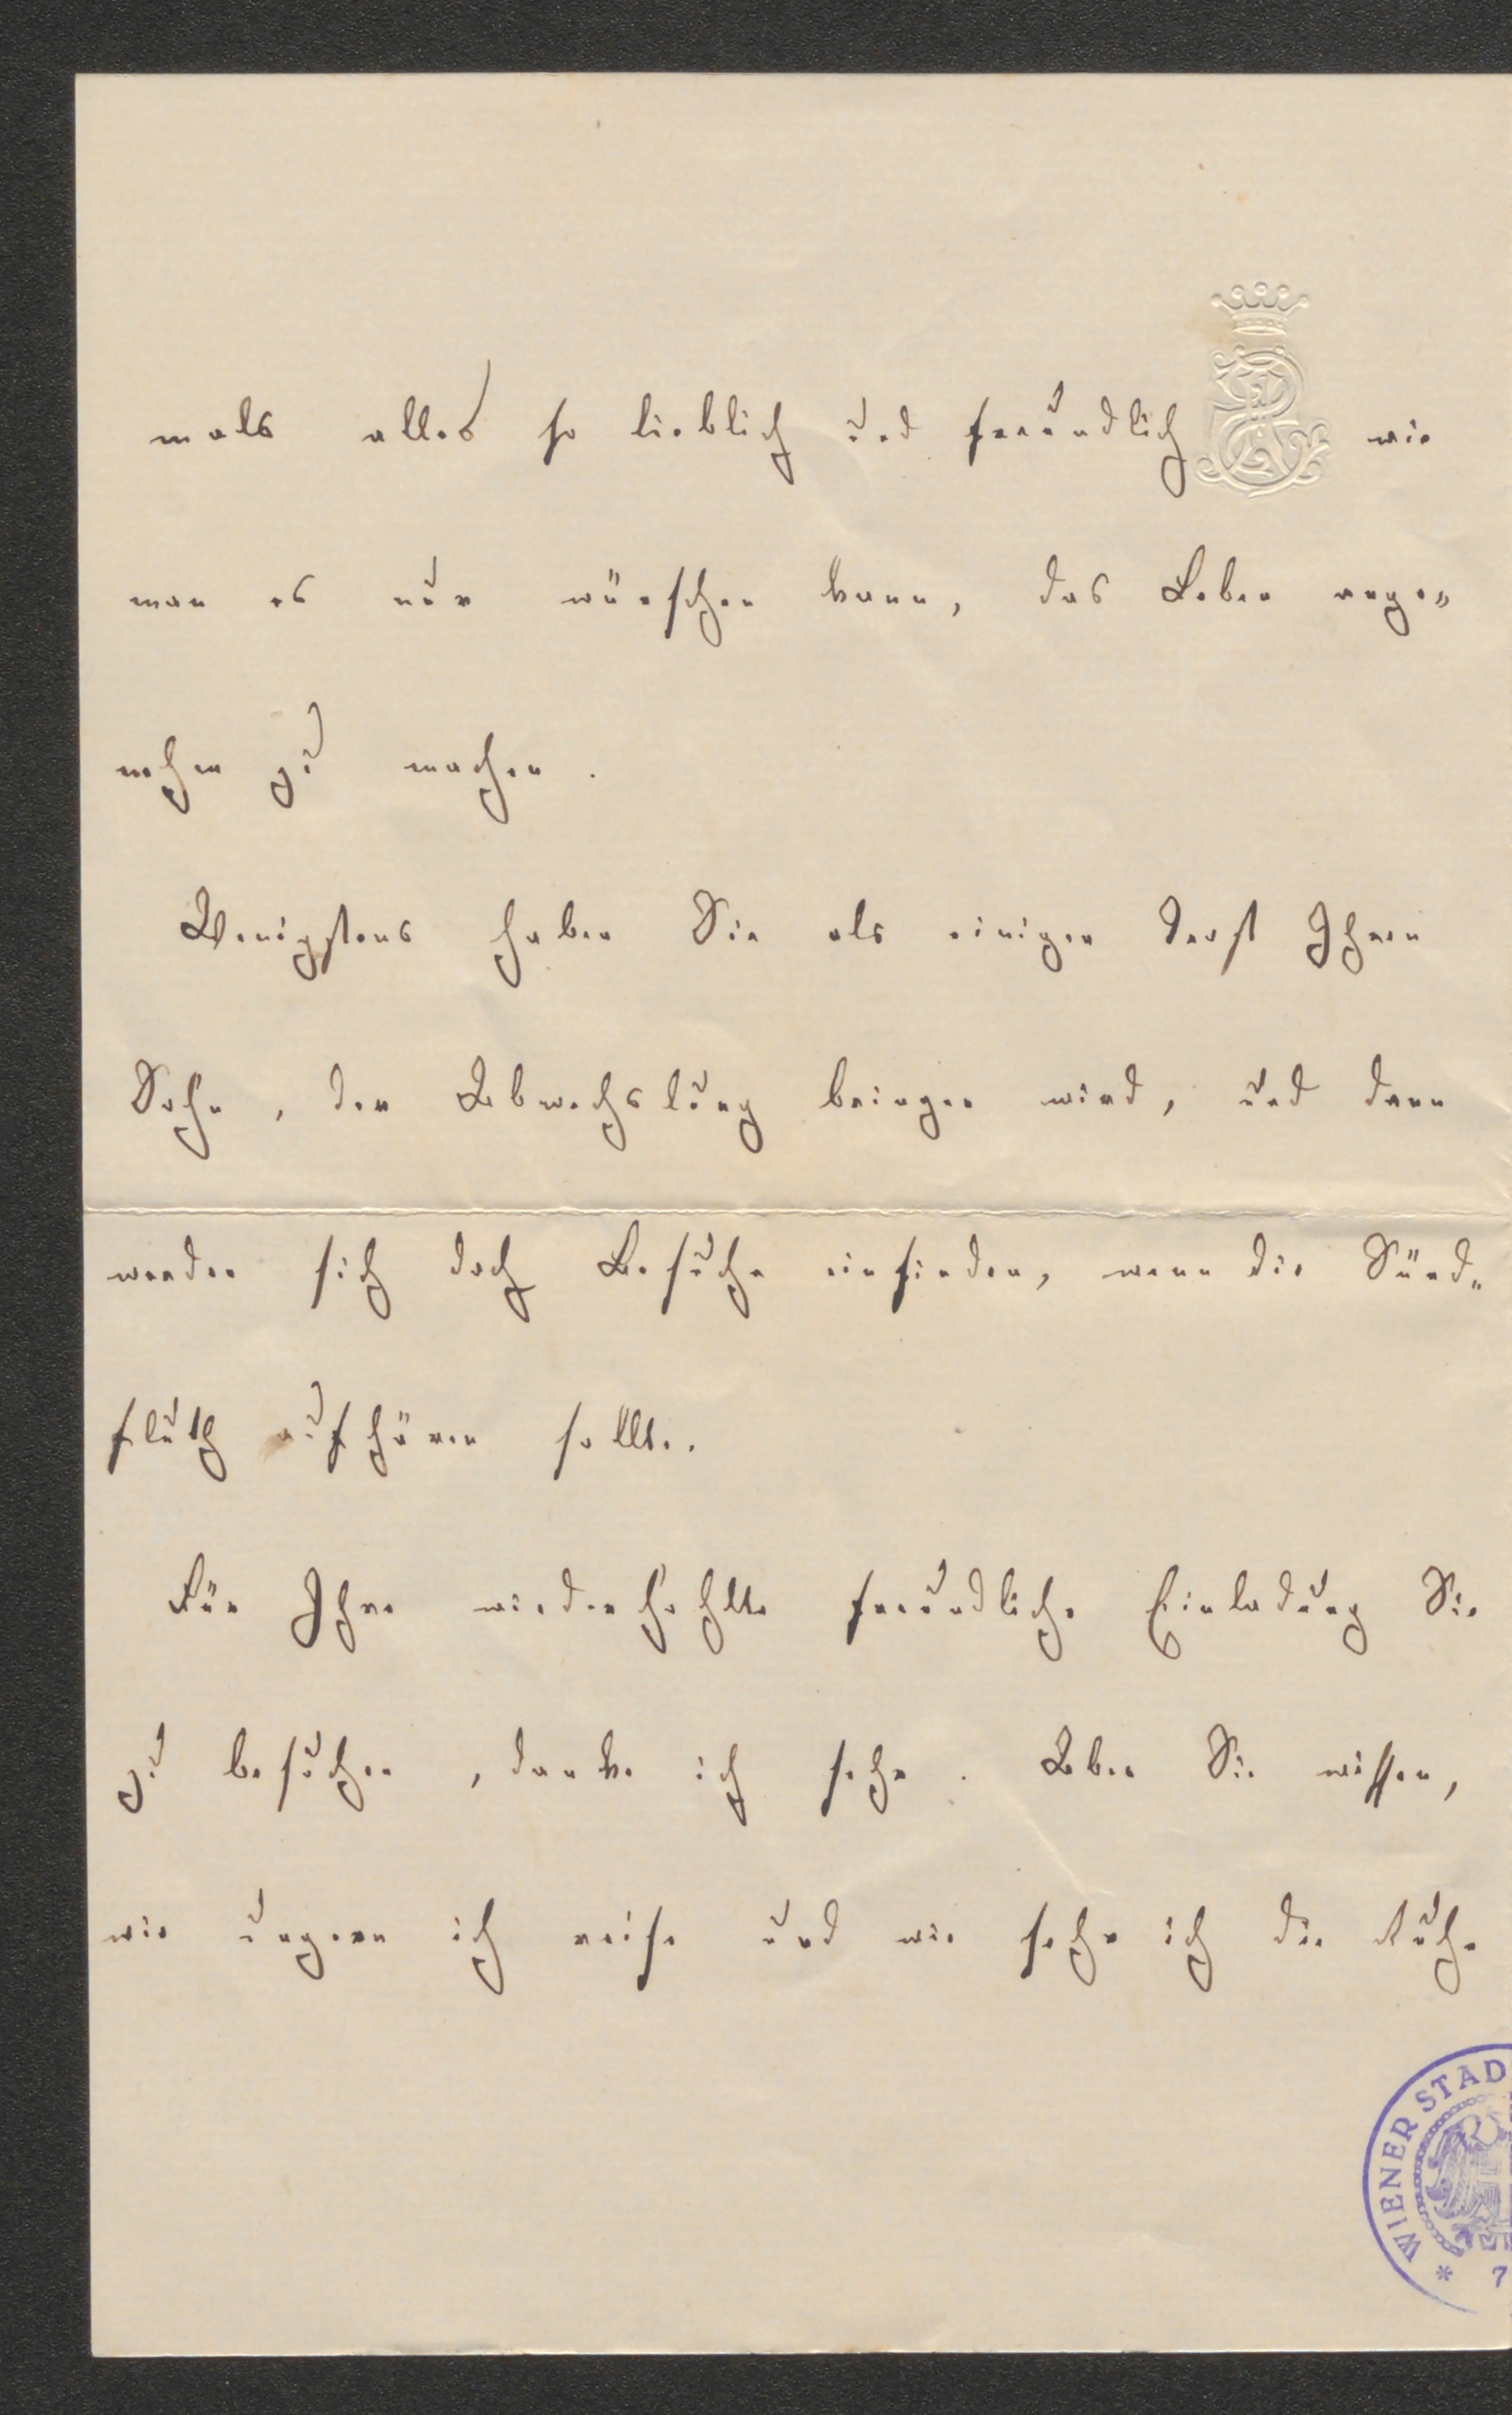 mals alles so lieblich und freundlich wie
man es nur wünschen kann, das Leben ange=
nehm zu machen.
Wenigstens haben Sie als einigen Trost Ihren
Sohn, der Abwechslung bringen wird, und dann
werden sich doch Besuche einfinden, wenn die Sünd=
fluth aufhören sollte.
Für Ihre wiederhohlte freundliche Einladung Sie
zu besuchen, danke ich sehr. Aber Sie wissen,
wie ungern ich reise und wie sehr ich die Ruhe
WIENER STAD
* 7